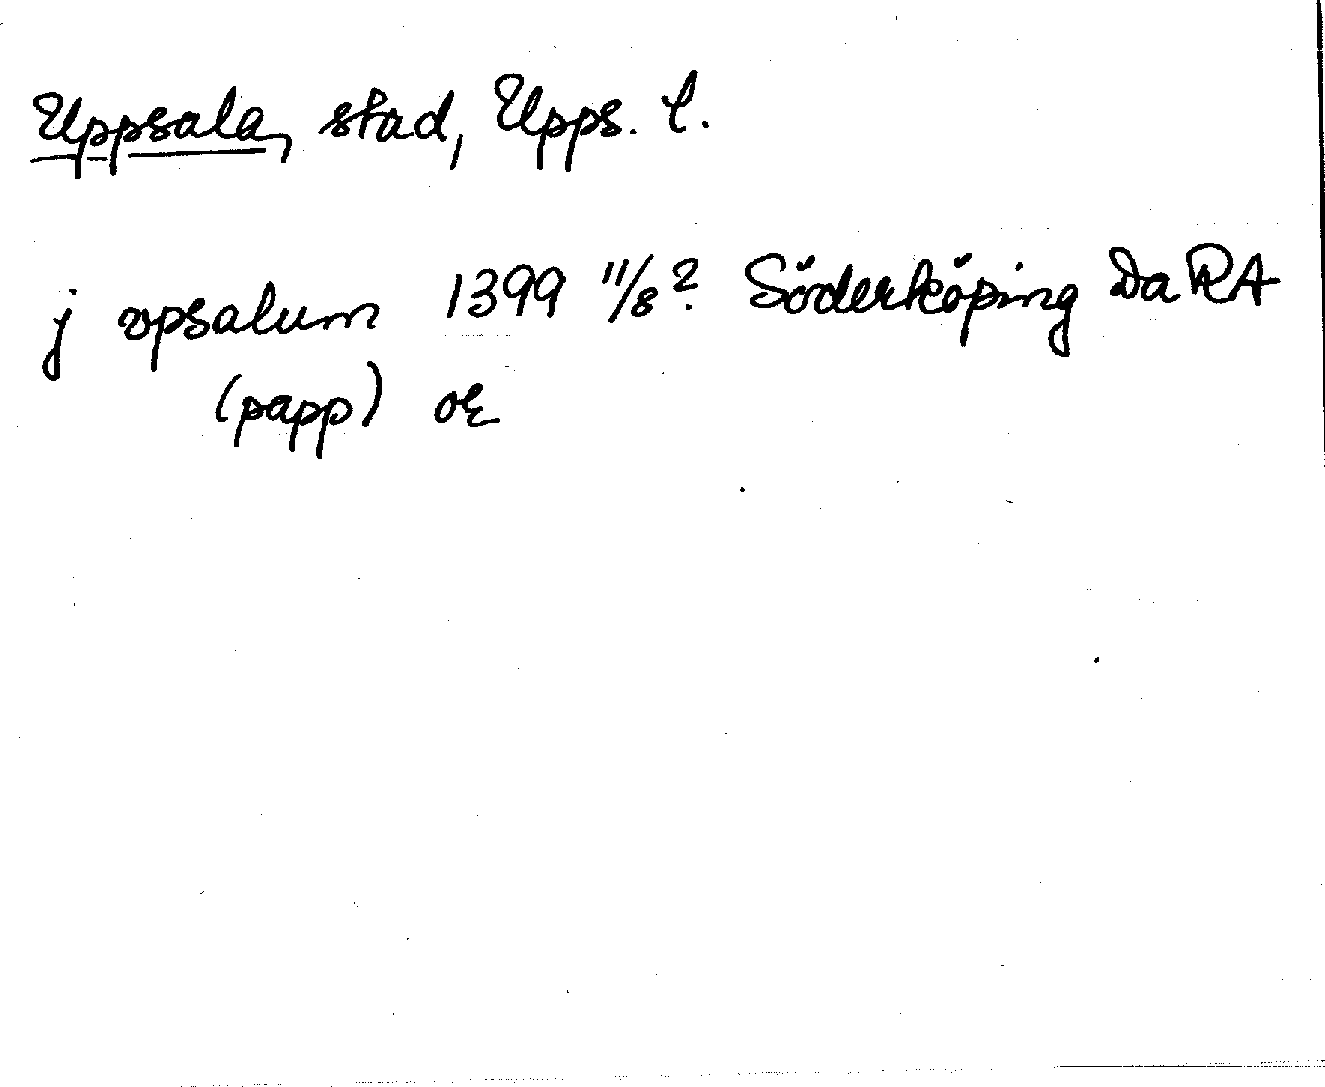 Uppsala, stad, Upps. l.
j vpsalum 1399 11/8? Söderköping DaRA
(papp) or